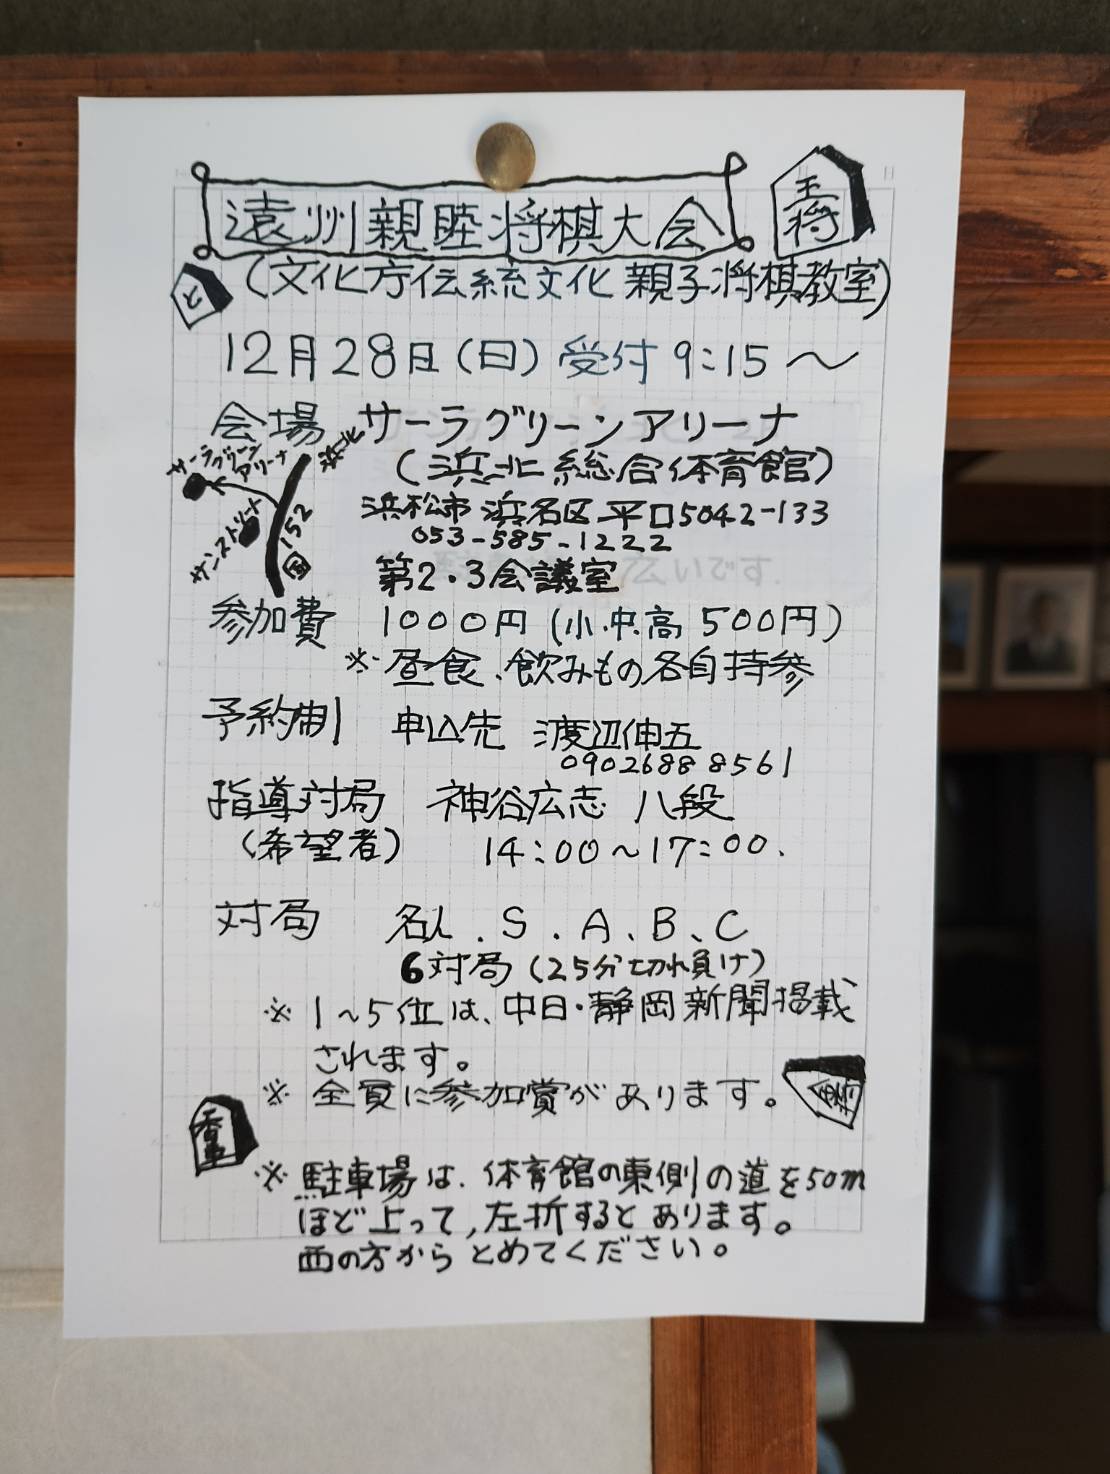 遠州親睦将棋大会
王将
と
(文化庁伝統文化 親子将棋教室)
12月28日(日) 受付 9:15〜
会場 サーラグリーンアリーナ
(浜北総合体育館)
浜松市 浜名区 平口5042-133
053-585-1222
第2・3会議室
サーラグリーン
アリーナ
浜北
サンストリート
152
参加費 1000円 (小.中.高 500円)
※ 昼食、飲みもの各自持参
予約制 申込先 渡辺伸五
09026888561
指導対局 神谷広志 八段
(希望者) 14:00〜17:00.
対局 名人.S.A、B、C
6対局(25分切れ負け)
※ 1〜5位は、中日・静岡新聞掲載
されます。
※ 全員に参加賞があります。
香車
※ 駐車場は、体育館の東側の道を50m
ほど上って,左折するとあります。
西の方からとめてください。